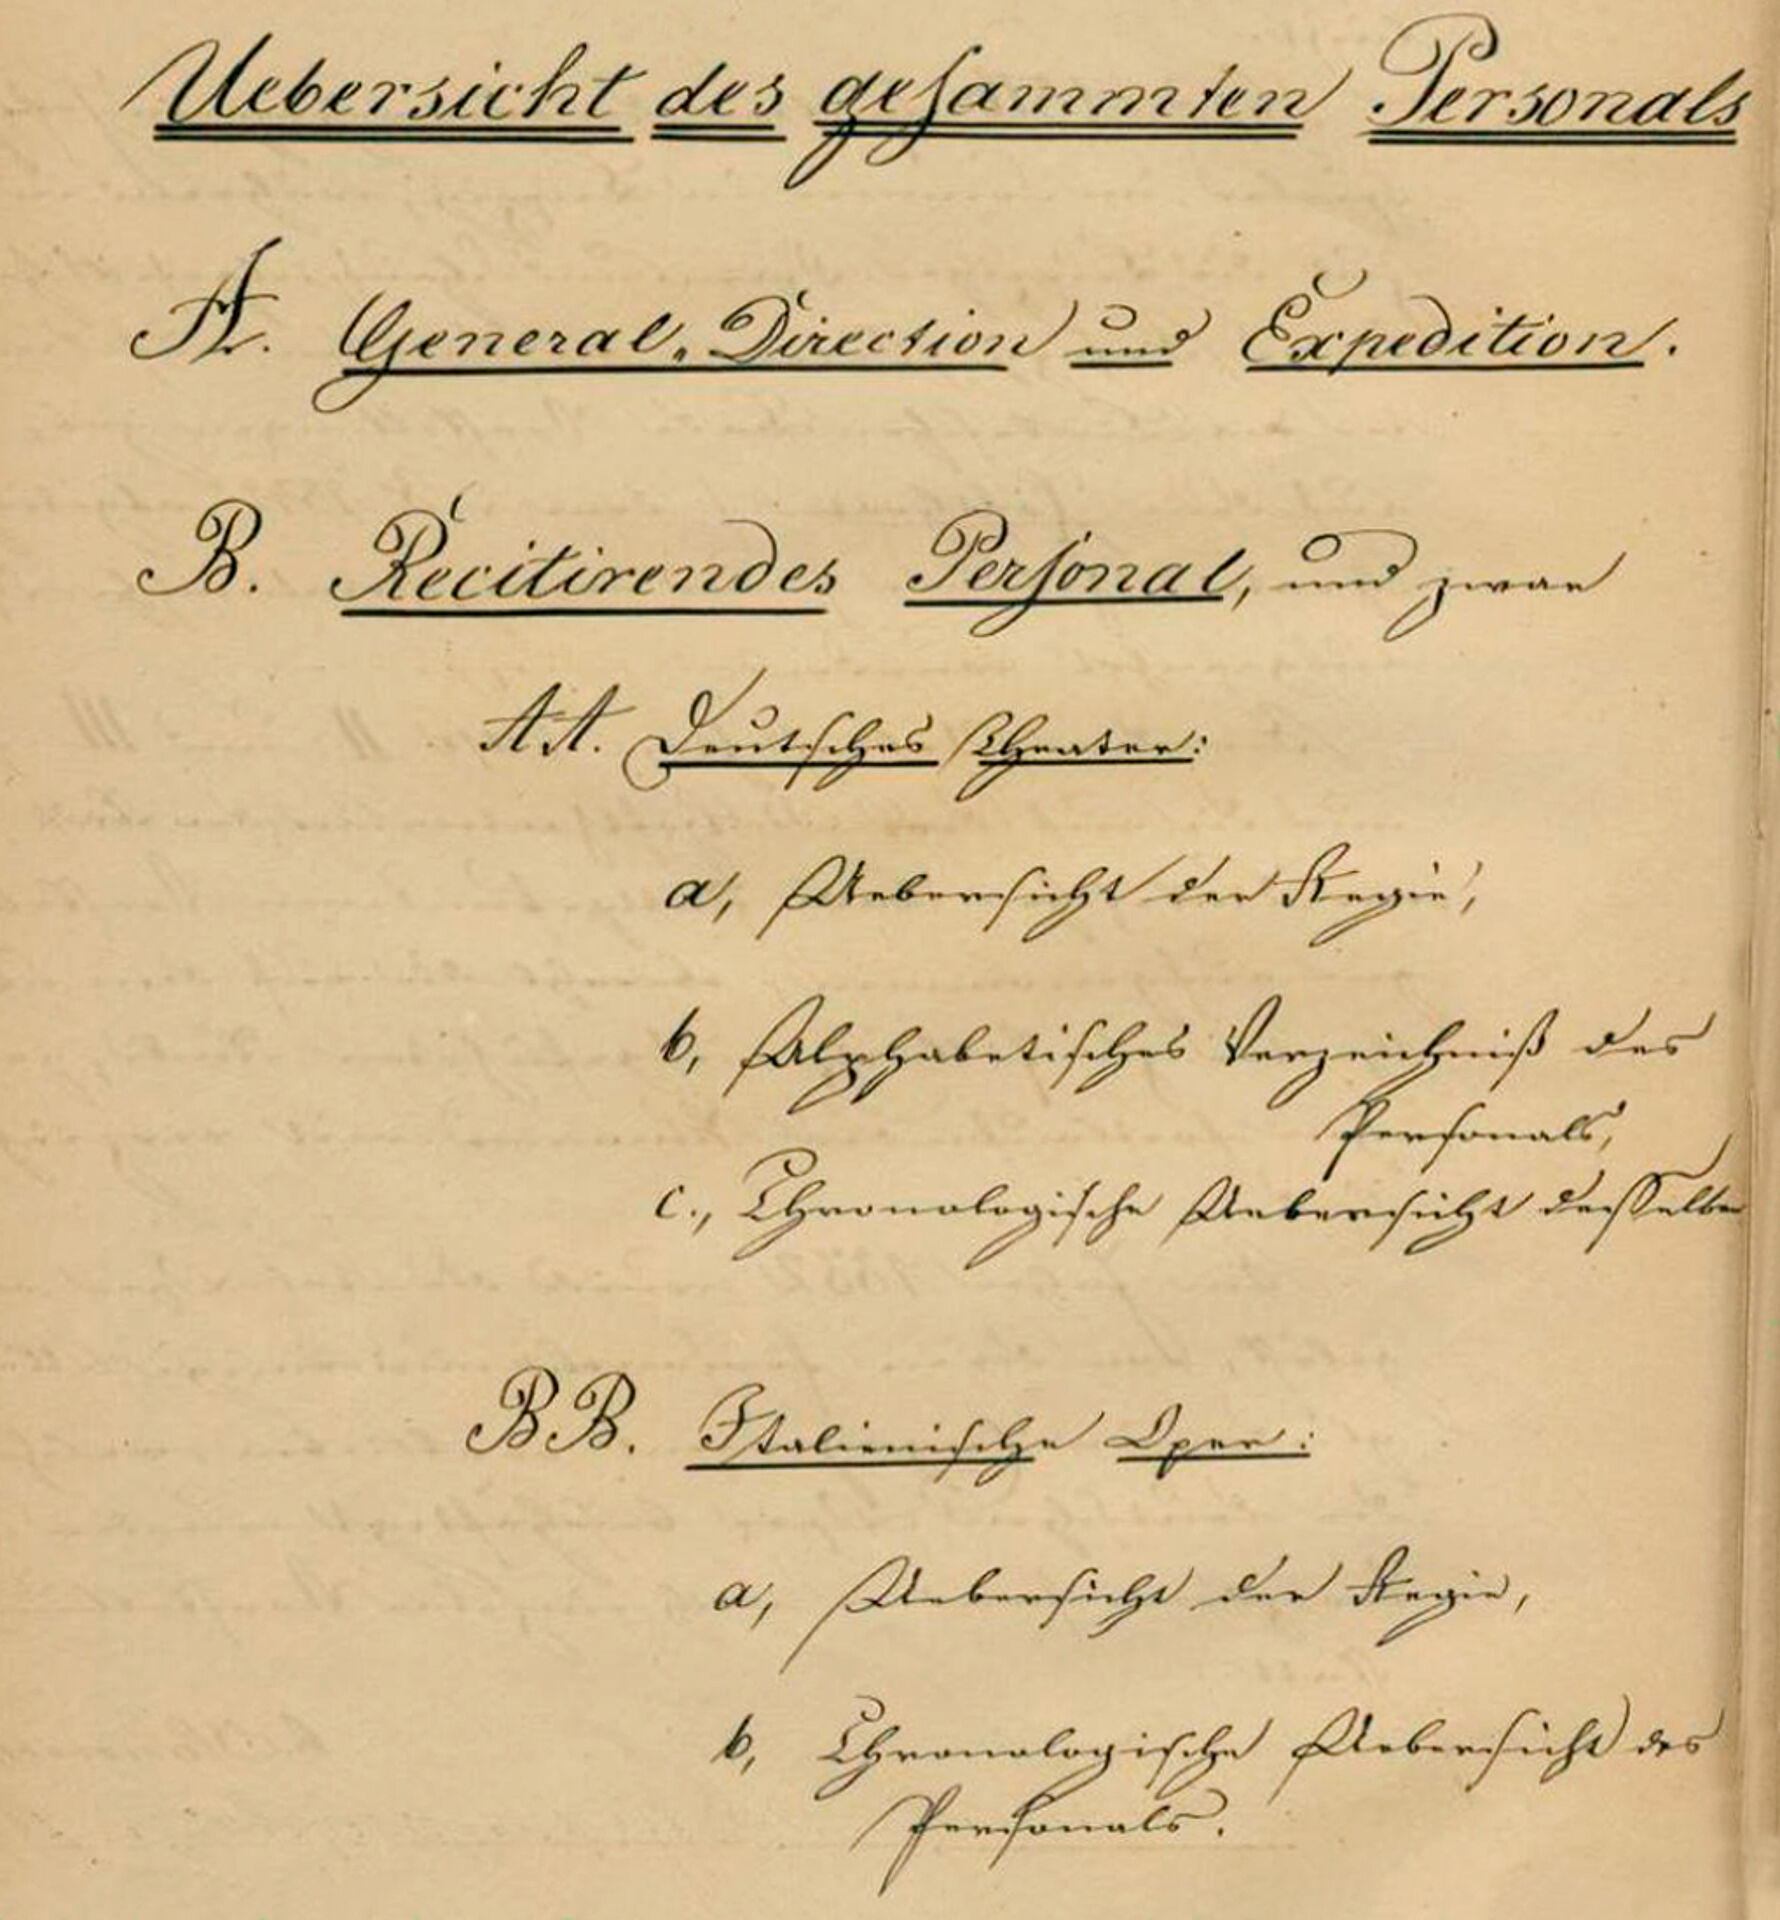 Uebersicht des gesammten Personals
A. General-Direction und Expedition.
B. Recitirendes Personal, und zwar
AA. Deutsches Theater:
a, Uebersicht der Regie,
b, Alphabetisches Verzeichniß des
Personals,
c., Chronologische Uebersicht desselben
BB. Italienische Oper:
a, Uebersicht der Regie,
b, Chronologische Uebersicht des
Personals.